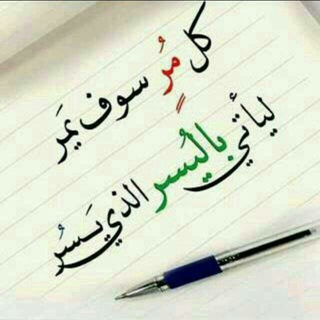 كل مُر سوف يمَر
ليأتي باليُسر الذي يَسُر